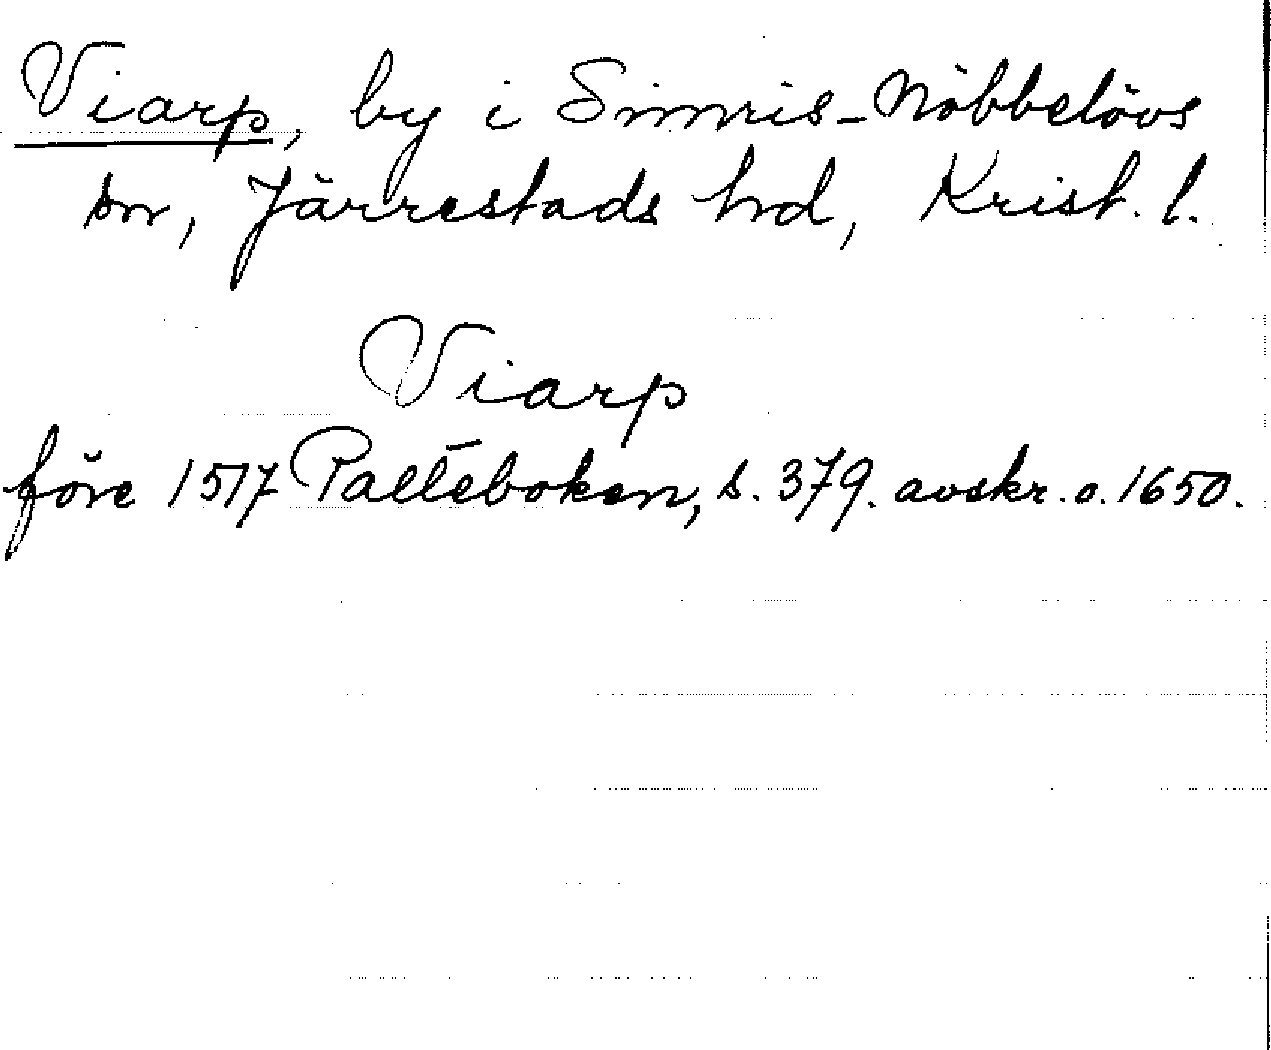 Viarp, by i Simris-Nöbbelövs
sn, Järrestads hrd, Krist. l.
Viarp
före 1517 Palteboken, s. 379. avskr. o. 1650.